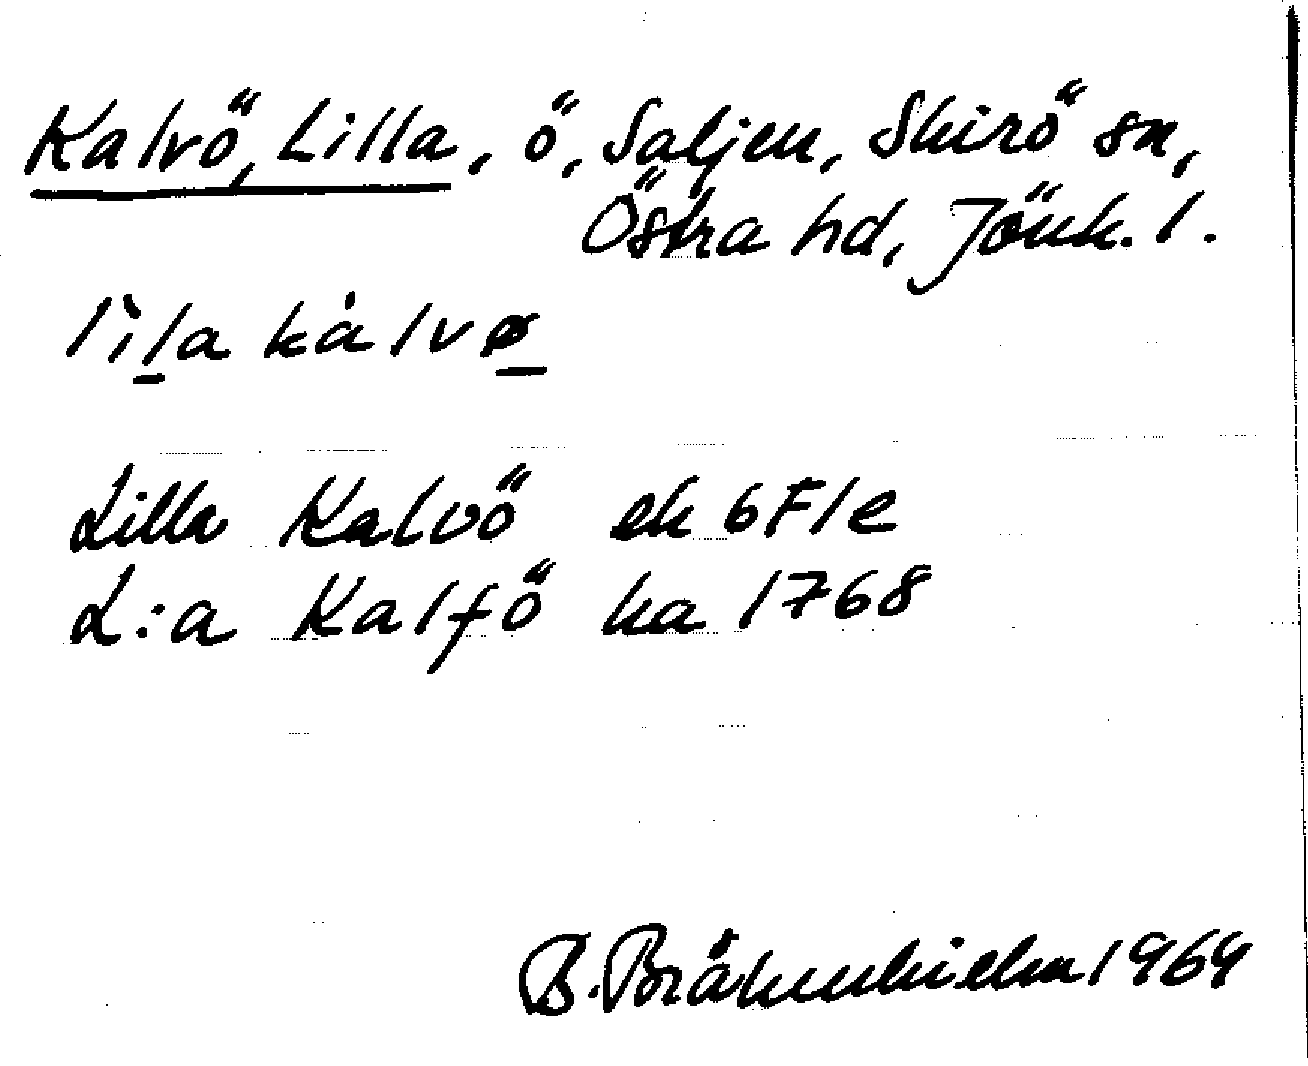 Kalvö, Lilla, ö, Saljen, Skirö sn,
Östra hd, Jönk. l.
lìla kȧlvø
Lilla Kalvö ek 6F1e
L:a Kalfö ka 1768
B. Bråkenhielm 1964